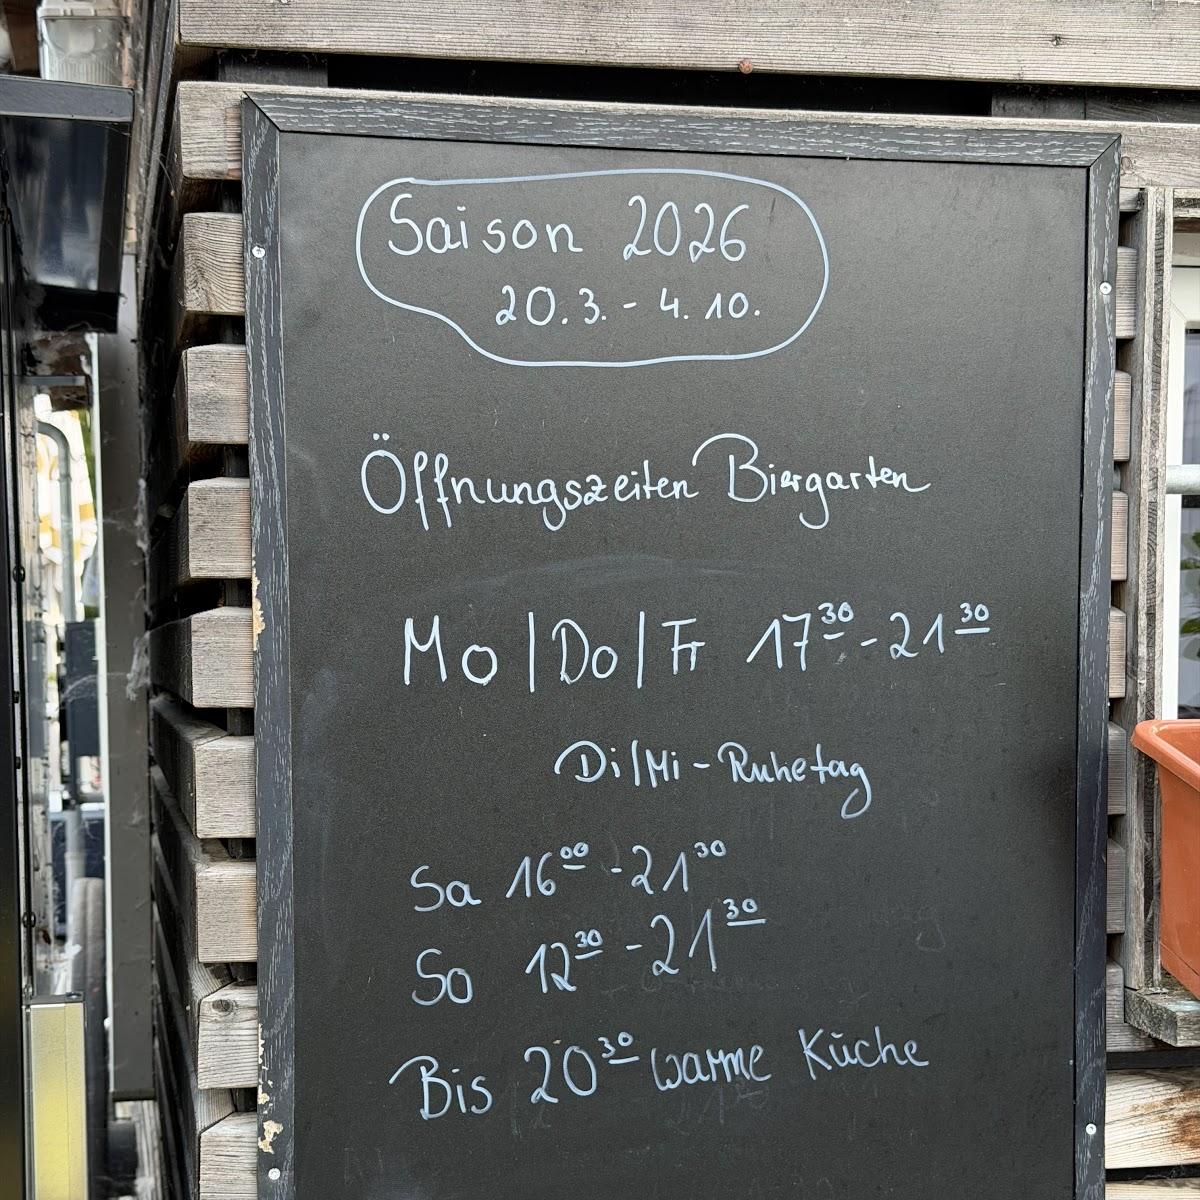 Saison 2026
20.3. - 4.10.
Öffnungszeiten Biergarten
Mo | Do | Fr 17³⁰ - 21³⁰
Di/Mi - Ruhetag
Sa 16⁰⁰ - 21³⁰
So 12³⁰ - 21³⁰
Bis 20³⁰ warme Küche